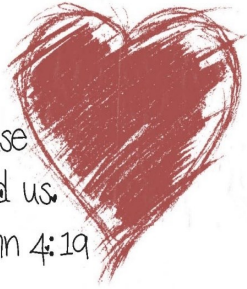 se
d us.
hn 4:19